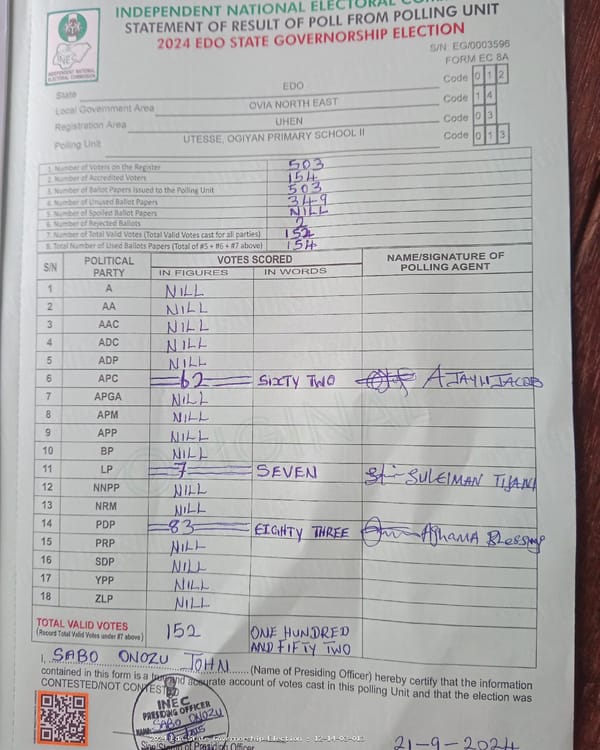 INDEPENDENT NATIONAL ELECTORAL
STATEMENT OF RESULT OF POLL FROM POLLING UNIT
2024 EDO STATE GOVERNORSHIP ELECTION
S/N: EG/0003596
FORM EC 8A
INEC
INDEPENDENT NATIONAL ELECTORAL COMMISSION
State EDO Code 0 1 2
Local Government Area OVIA NORTH EAST Code 1 4
Registration Area UHEN Code 0 3
Polling Unit UTESSE, OGIYAN PRIMARY SCHOOL II Code 0 1 3
1. Number of Voters on the Register 503
2. Number of Accredited Voters 154
3. Number of Ballot Papers Issued to the Polling Unit 503
4. Number of Unused Ballot Papers 349
5. Number of Spoiled Ballot Papers NILL
6. Number of Rejected Ballots 2
7. Number of Total Valid Votes (Total Valid Votes cast for all parties) 152
8. Total Number of Used Ballots Papers (Total of #5 + #6 + #7 above) 154
S/N POLITICAL PARTY VOTES SCORED NAME/SIGNATURE OF POLLING AGENT
IN FIGURES IN WORDS
1 A NILL
2 AA NILL
3 AAC NILL
4 ADC NILL
5 ADP NILL
6 APC 62 SIXTY TWO AJAYI JACOB
7 APGA NILL
8 APM NILL
9 APP NILL
10 BP NILL
11 LP 7 SEVEN SULEIMAN TIJANI
12 NNPP NILL
13 NRM NILL
14 PDP 83 EIGHTY THREE Blessing
15 PRP NILL
16 SDP NILL
17 YPP NILL
18 ZLP NILL
ORIGINAL
TOTAL VALID VOTES 152 ONE HUNDRED
(Record Total Valid Votes under #7 above) AND FIFTY TWO
I, SABO ONOZU JOHN (Name of Presiding Officer) hereby certify that the information
contained in this form is a true and accurate account of votes cast in this polling Unit and that the election was
CONTESTED/NOT CONTESTED
INEC
PRESIDING OFFICER
NAME: SABO ONOZU
2024 Edo State Governorship Election - 12-14-03-013
of Presiding Officer
21-9-2024